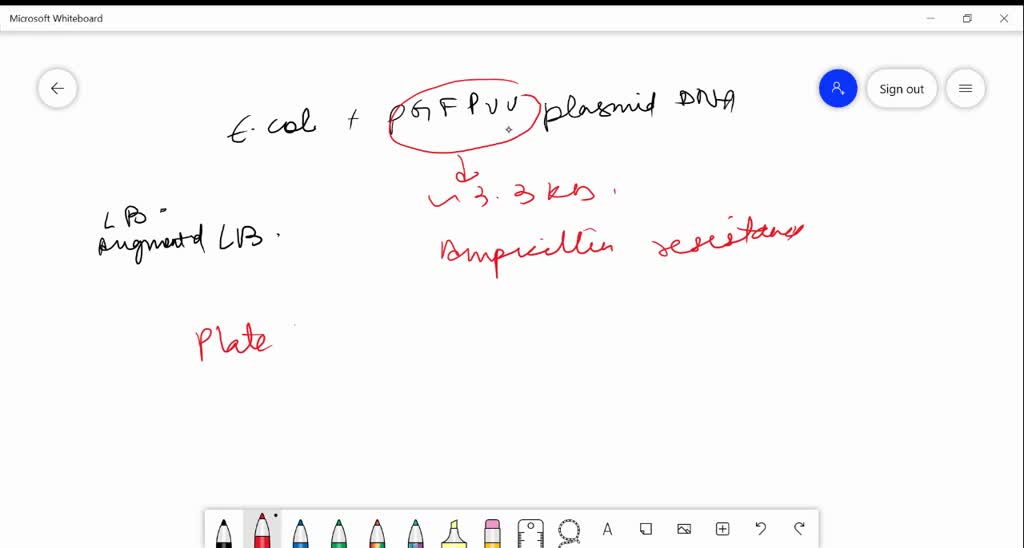 Microsoft Whiteboard
Sign out
E. coli + pGFPuv plasmid DNA
~ 3.3 KB.
LB.
Augmented LB.
Ampicillin resistance
Plate
A